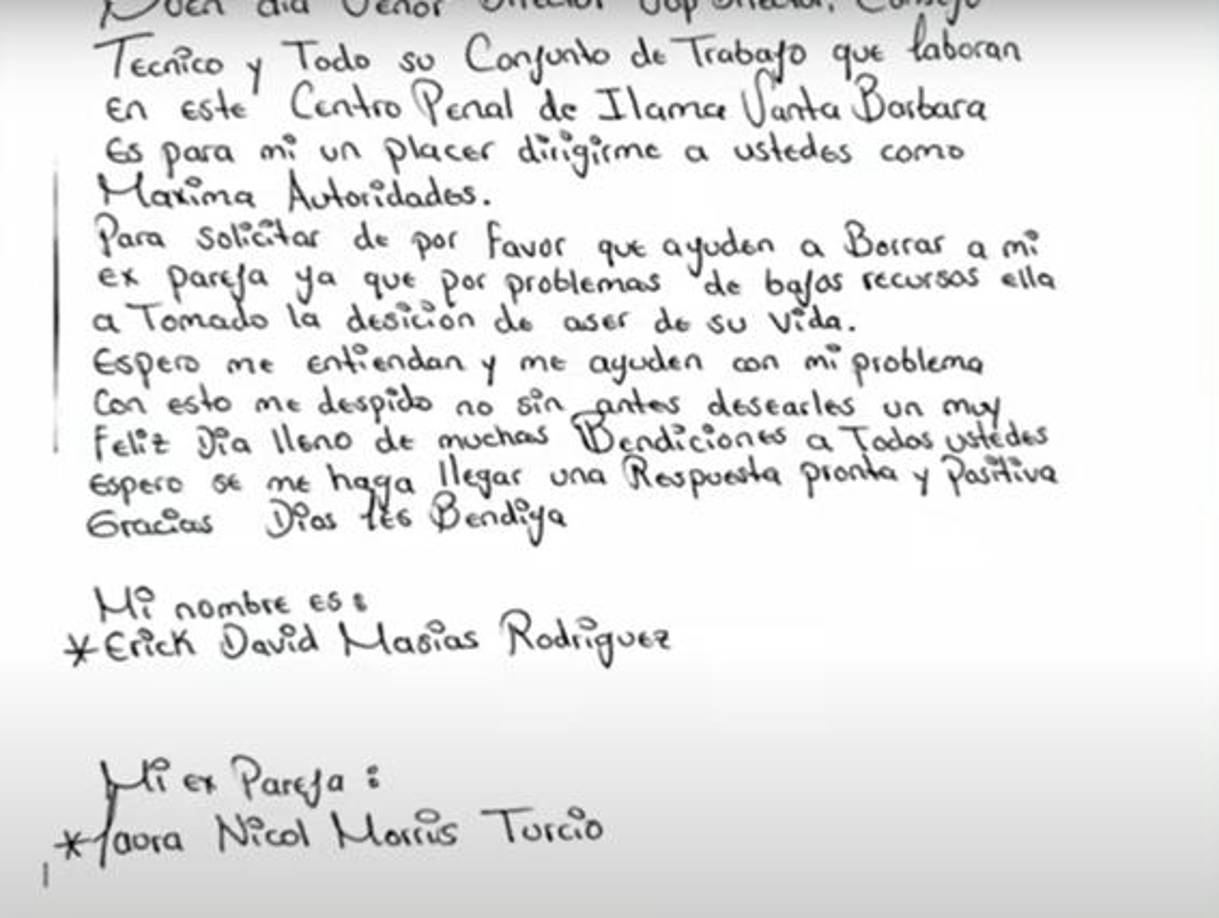 Buen dia Señor Director Sup Director, Consejo
Tecnico y Todo su Conjunto de Trabajo que laboran
En este Centro Penal de Ilama Santa Barbara
Es para mi un placer dirigirme a ustedes como
Maxima Autoridades.
Para solicitar de por favor que ayuden a Borrar a mi
ex pareja ya que por problemas de bajos recursos ella
a Tomado la desición de aser de su vida.
Espero me entiendan y me ayuden con mi problema
Con esto me despido no sin antes desearles un muy
Feliz Dia lleno de muchas Bendiciones a Todos ustedes
Espero se me haga llegar una Respuesta pronta y Positiva
Gracias Dios les Bendiga
Mi nombre es:
*Erick David Masias Rodriguez
Mi ex Pareja:
*laura Nicol Morris Turcio